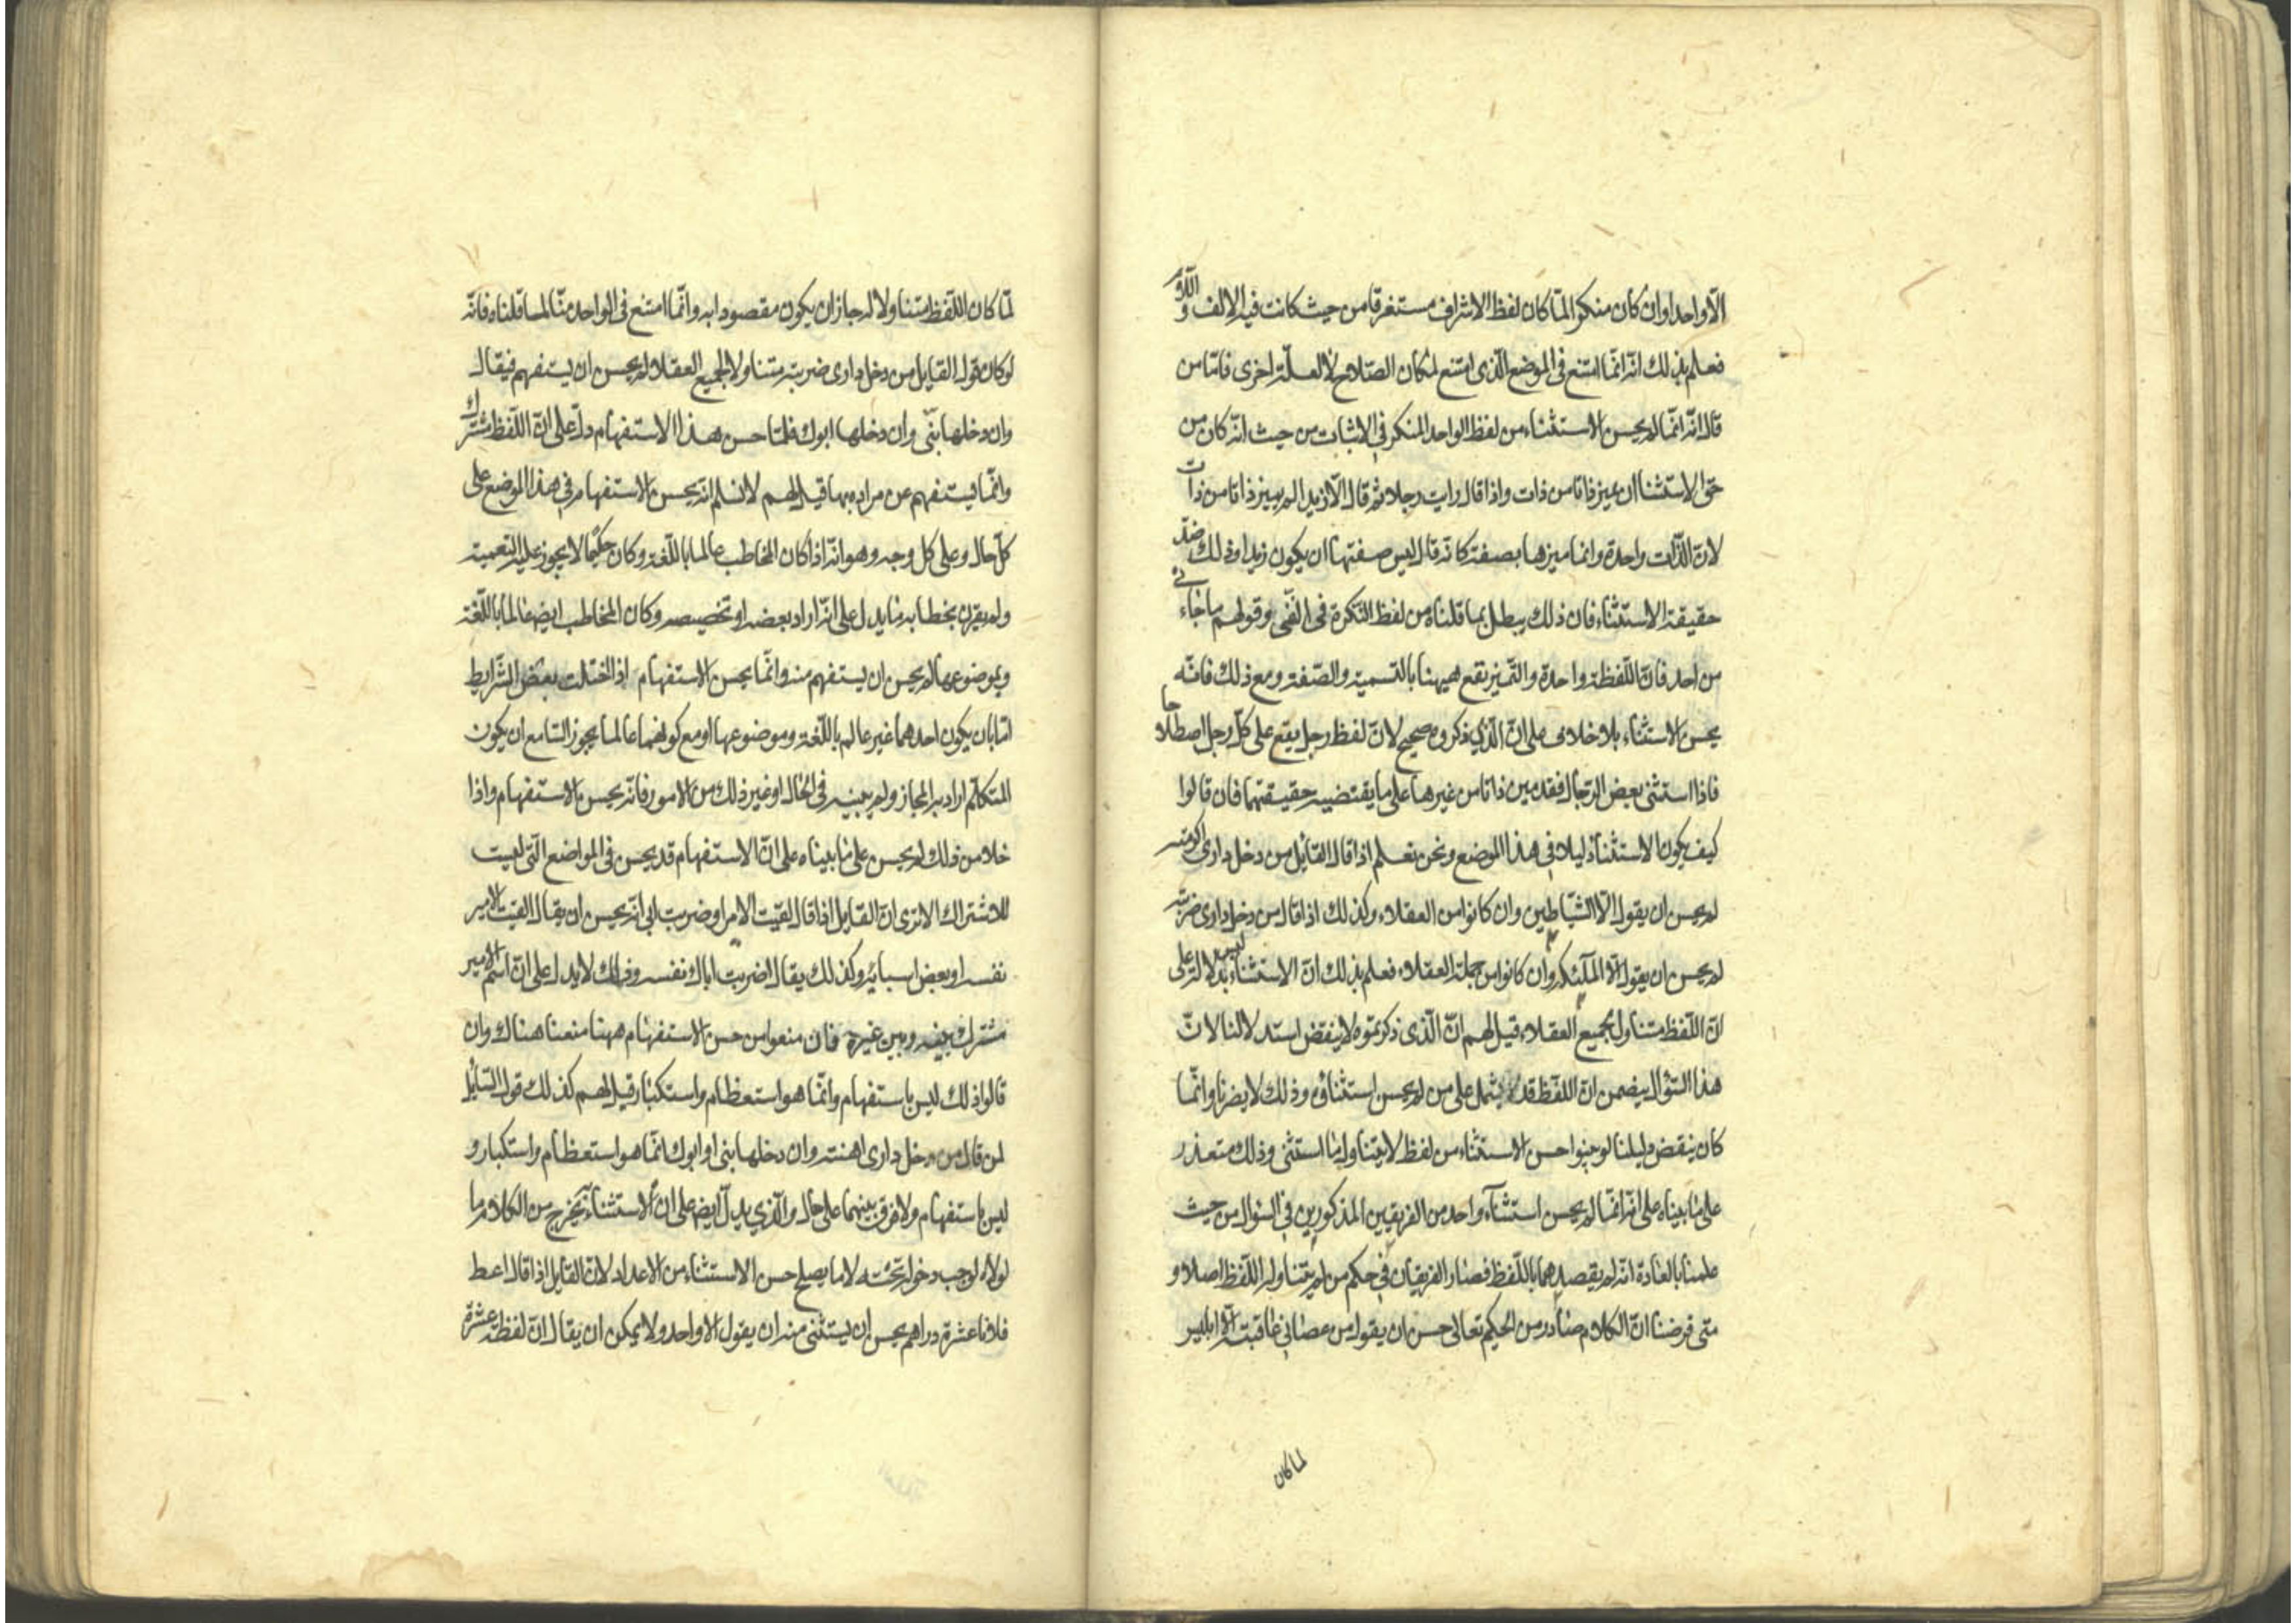 الّا واحدا وان كان منكرا لمّا كان لفظ الاشراف مستغرقا من حيث كانت فيه الالف و اللام
فعلم بذلك انّه انّما امتنع فى الموضع الّذى امتنع لمكان الصّلاح لا لعلّة اخرى فامّا من
قال انّه انّما لم يحسن الاستثناء من لفظ الواحد المنكر في الاثبات من حيث انّه كان من
حق الاستثنا ان يميز ذاتا من ذات واذا قال رايت رجلا ثم قال الّا زيدا لم يميز ذاتا من ذات
لانّ الذّات واحدة وانما ميزها بصفة كانّه قال ليس صفتها ان يكون زيدا وذلك ضدّ
حقيقة الاستثناء فان ذلك يبطل بما قلناه من لفظ النّكرة فى النّفى وقولهم ما جاءنى
من احد فانّ اللّفظة واحدة والتّميز تقع هيهنا بالتسمية والصّفة ومع ذلك فانّه
يحسن الاستثناء بلا خلاف على انّ الّذي ذكروه صحيح لانّ لفظ رجل يقع على كلّ رجل اصطلاحا
فاذا استثنى بعض الرّجال فقد مين ذاتا من غيرها على ما يقتضيه حقيقتها فان قالوا
كيف يكون الاستثناء دليلا في هذا الموضع ونحن نعلم اذا قال القائل من دخل دارى اكرمته
لم يحسن ان يقول الّا الشيّاطين وان كانوا من العقلاء وكذلك اذا قال من دخل دارى ضربته
لم يحسن ان يقول الّا الملّئكة وان كانوا من جملة العقلاء فعلم بذلك انّ الاستثناء ليس بدلالة على
انّ اللّفظ متناول لجميع العقلاء قيل لهم انّ الّذى ذكرتموه لا ينقض استدلالنا لانّ
هذا السّؤال يضمن انّ اللفّظ قد يشمل على من لم يحسن استثناؤه وذلك لا يضرنا وانّما
كان ينقض دليلنا لو بينوا حسن الاستثناء من لفظ لا يتناول ما استثنى وذلك متعذر
على ما بيناه على انّه انّما لم يحسن استثنآء واحد من الفريقين المذكورين في السؤال من حيث
علمنا بالعادة انّه لم يقصدهما باللّفظ فصار الفريقان في حكم من لم يتناوله اللّفظ اصلا و
متى فرضنا انّ الكلام صادر من الحكيم تعالى حسن ان يقول من عصانى عاقبته الّا ابليس
لما كان
لمّا كان اللّفظ متناولا له جاز ان يكون مقصودا به وانّما امتنع فى الواحد منّا لما قلناه فانّه
لو كان قول القايل من دخل دارى ضربته متناولا لجميع العقلاء لم يحسن ان يستفهم فيقال
وان دخلها بنى وان دخلها ابوك فلمّا حسن هذا الاستفهام دلّ على انّ اللّفظ مشترك
وانّما يستفهم عن مراده بها قيل لهم لا نسلم انّه يحسن الاستفهام في هذا الموضع على
كلّ حال وعلى كل وجه وهو انّه اذا كان المخاطب عالما باللّغة وكان حكيما لا يجوز عليه التعمية
ولم يقرن بخطابه ما يدل على انّه اراد بعضه او تخصيصه وكان المخاطب ايضا عالما باللّغة
وبموضوعها لم يحسن ان يستفهم منه وانّما يحسن الاستفهام اذا اختلت بعض الشّرايط
امّا بان يكون احدهما غير عالم باللّغة وموضوعها او مع كونهما عالما يجوز السّامع ان يكون
المتكلّم اراد به المجاز ولم يبينه في الحال او غير ذلك من الامور فانّه يحسن الاستفهام واذا
خلا من ذلك لم يحسن على ما بيناه على انّ الاستفهام قد يحسن فى المواضع الّتى ليست
للاشتراك الا ترى انّ القايل اذا قال لقيت الامر او ضربت ابى انّه يحسن ان يقال القيت الامير
نفسه او بعض اسبائه وكذلك يقال اضربت اباك نفسه وذلك لا يدل على انّ اسم الامير
مشترك بينه وبين غيره فان منعوا من حسن الاستفهام ههنا منعنا هناك وان
قالوا ذلك ليس باستفهام وانّما هو استعظام واستكبار قيل لهم كذلك قول السّايل
لمن قال من دخل دارى اهنته وان دخلها بنى او ابوك انّما هو استعظام واستكبار و
ليس باستفهام ولا فرق بينهما على حال والّذي يدلّ ايضا على ان الاستثناء يخرج من الكلام ما
لولاه لوجب دخوله تحته لا ما يصلح حسن الاستثناء من الاعداد لانّ القايل اذا قال اعط
فلانا عشرة دراهم يحسن ان يستثنى منه ان يقول الا واحد ولا يمكن ان يقال انّ لفظة عشرة